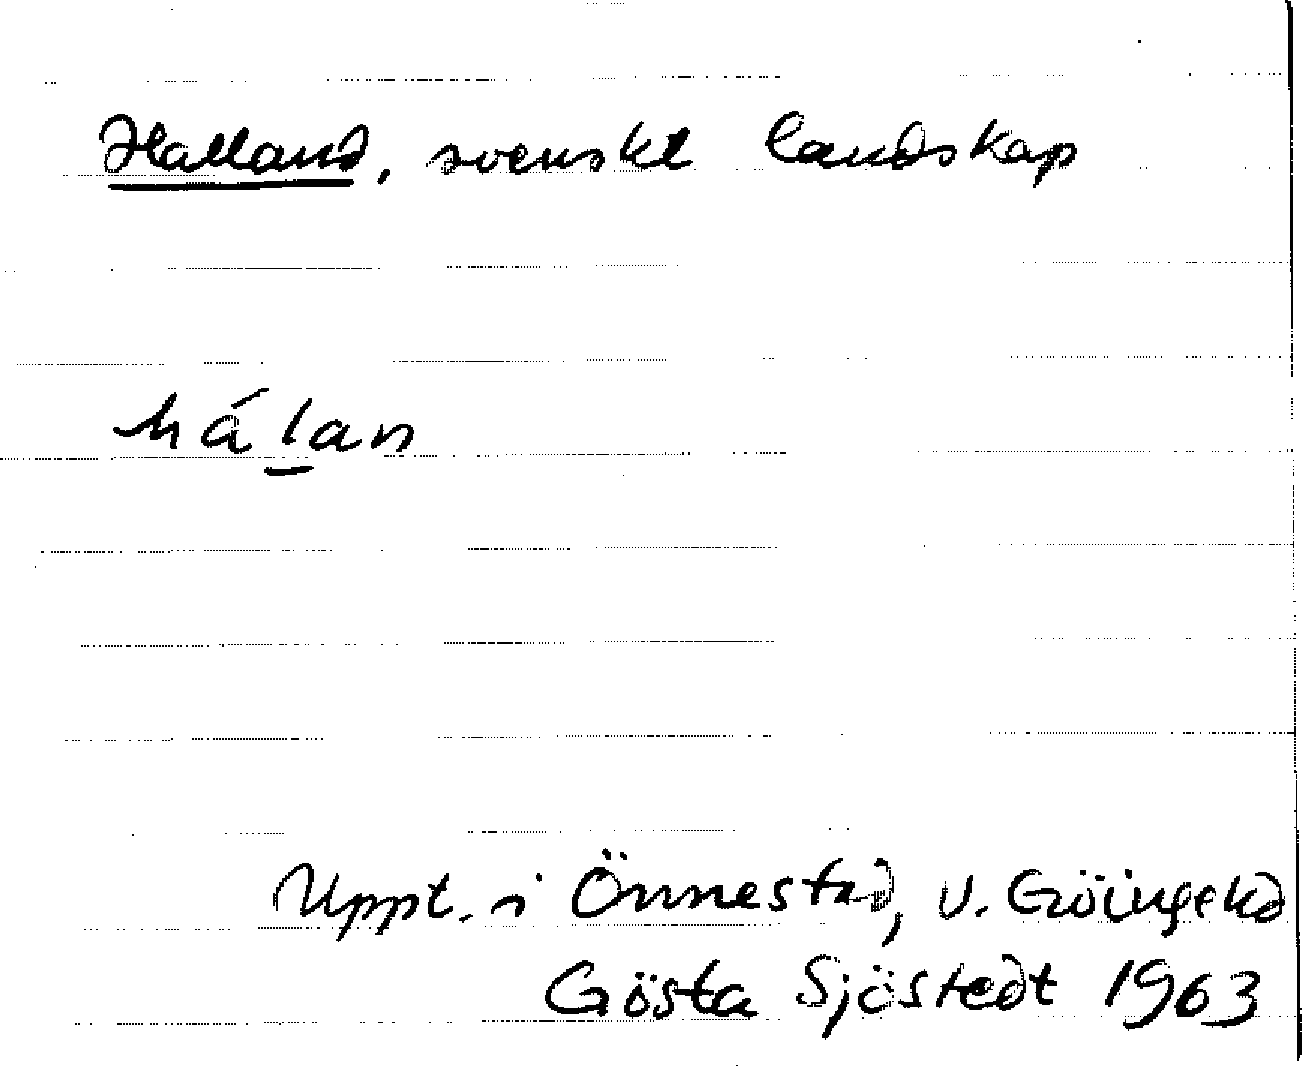 Halland, svenskt landskap
hálan
Uppt. i Önnestad, V. Göingehd
Gösta Sjöstedt 1963